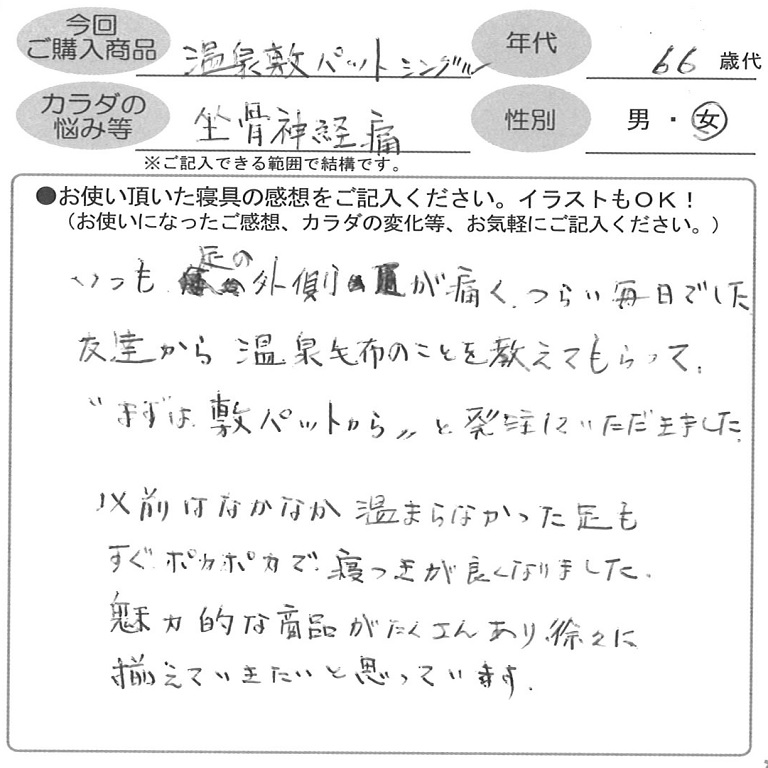 今回
ご購入商品
温泉敷パットシングル
年代
66 歳代
カラダの
悩み等
坐骨神経痛
性別
男・女
※ご記入できる範囲で結構です。
●お使い頂いた寝具の感想をご記入ください。イラストもOK！
（お使いになったご感想、カラダの変化等、お気軽にご記入ください。）
いつも足の外側が痛く、つらい毎日でした
友達から温泉毛布のことを教えてもらって、
“まずは敷パットから〃と発注していただきました。
以前はなかなか温まらなかった足も
すぐポカポカで寝つきが良くなりました。
魅力的な商品がたくさんあり徐々に
揃えていきたいと思っています。